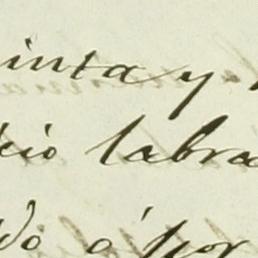 inta y
cio labra
do ó por